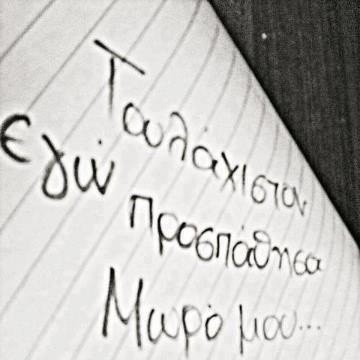 Τουλάχιστον
εγώ
προσπάθησα
Μωρό μου...